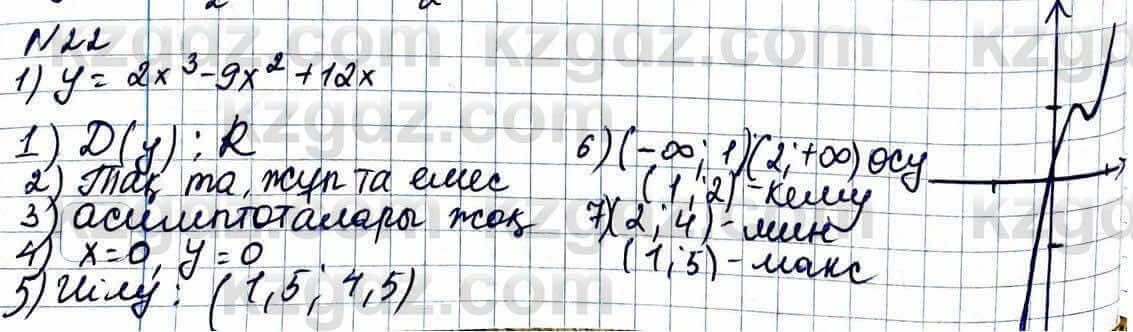 N22
1) y = 2x³ - 9x² + 12x
1) D(y) : R
2) Тақ та, жұп та емес
3) асимптоталары жоқ
4) x=0, y=0
5) Иілу: (1,5; 4,5)
6) (-∞; 1) (2; +∞) өсу
(1; 2) - кему
7) (2; 4) - мин
(1; 5) - макс
kzgdz.com